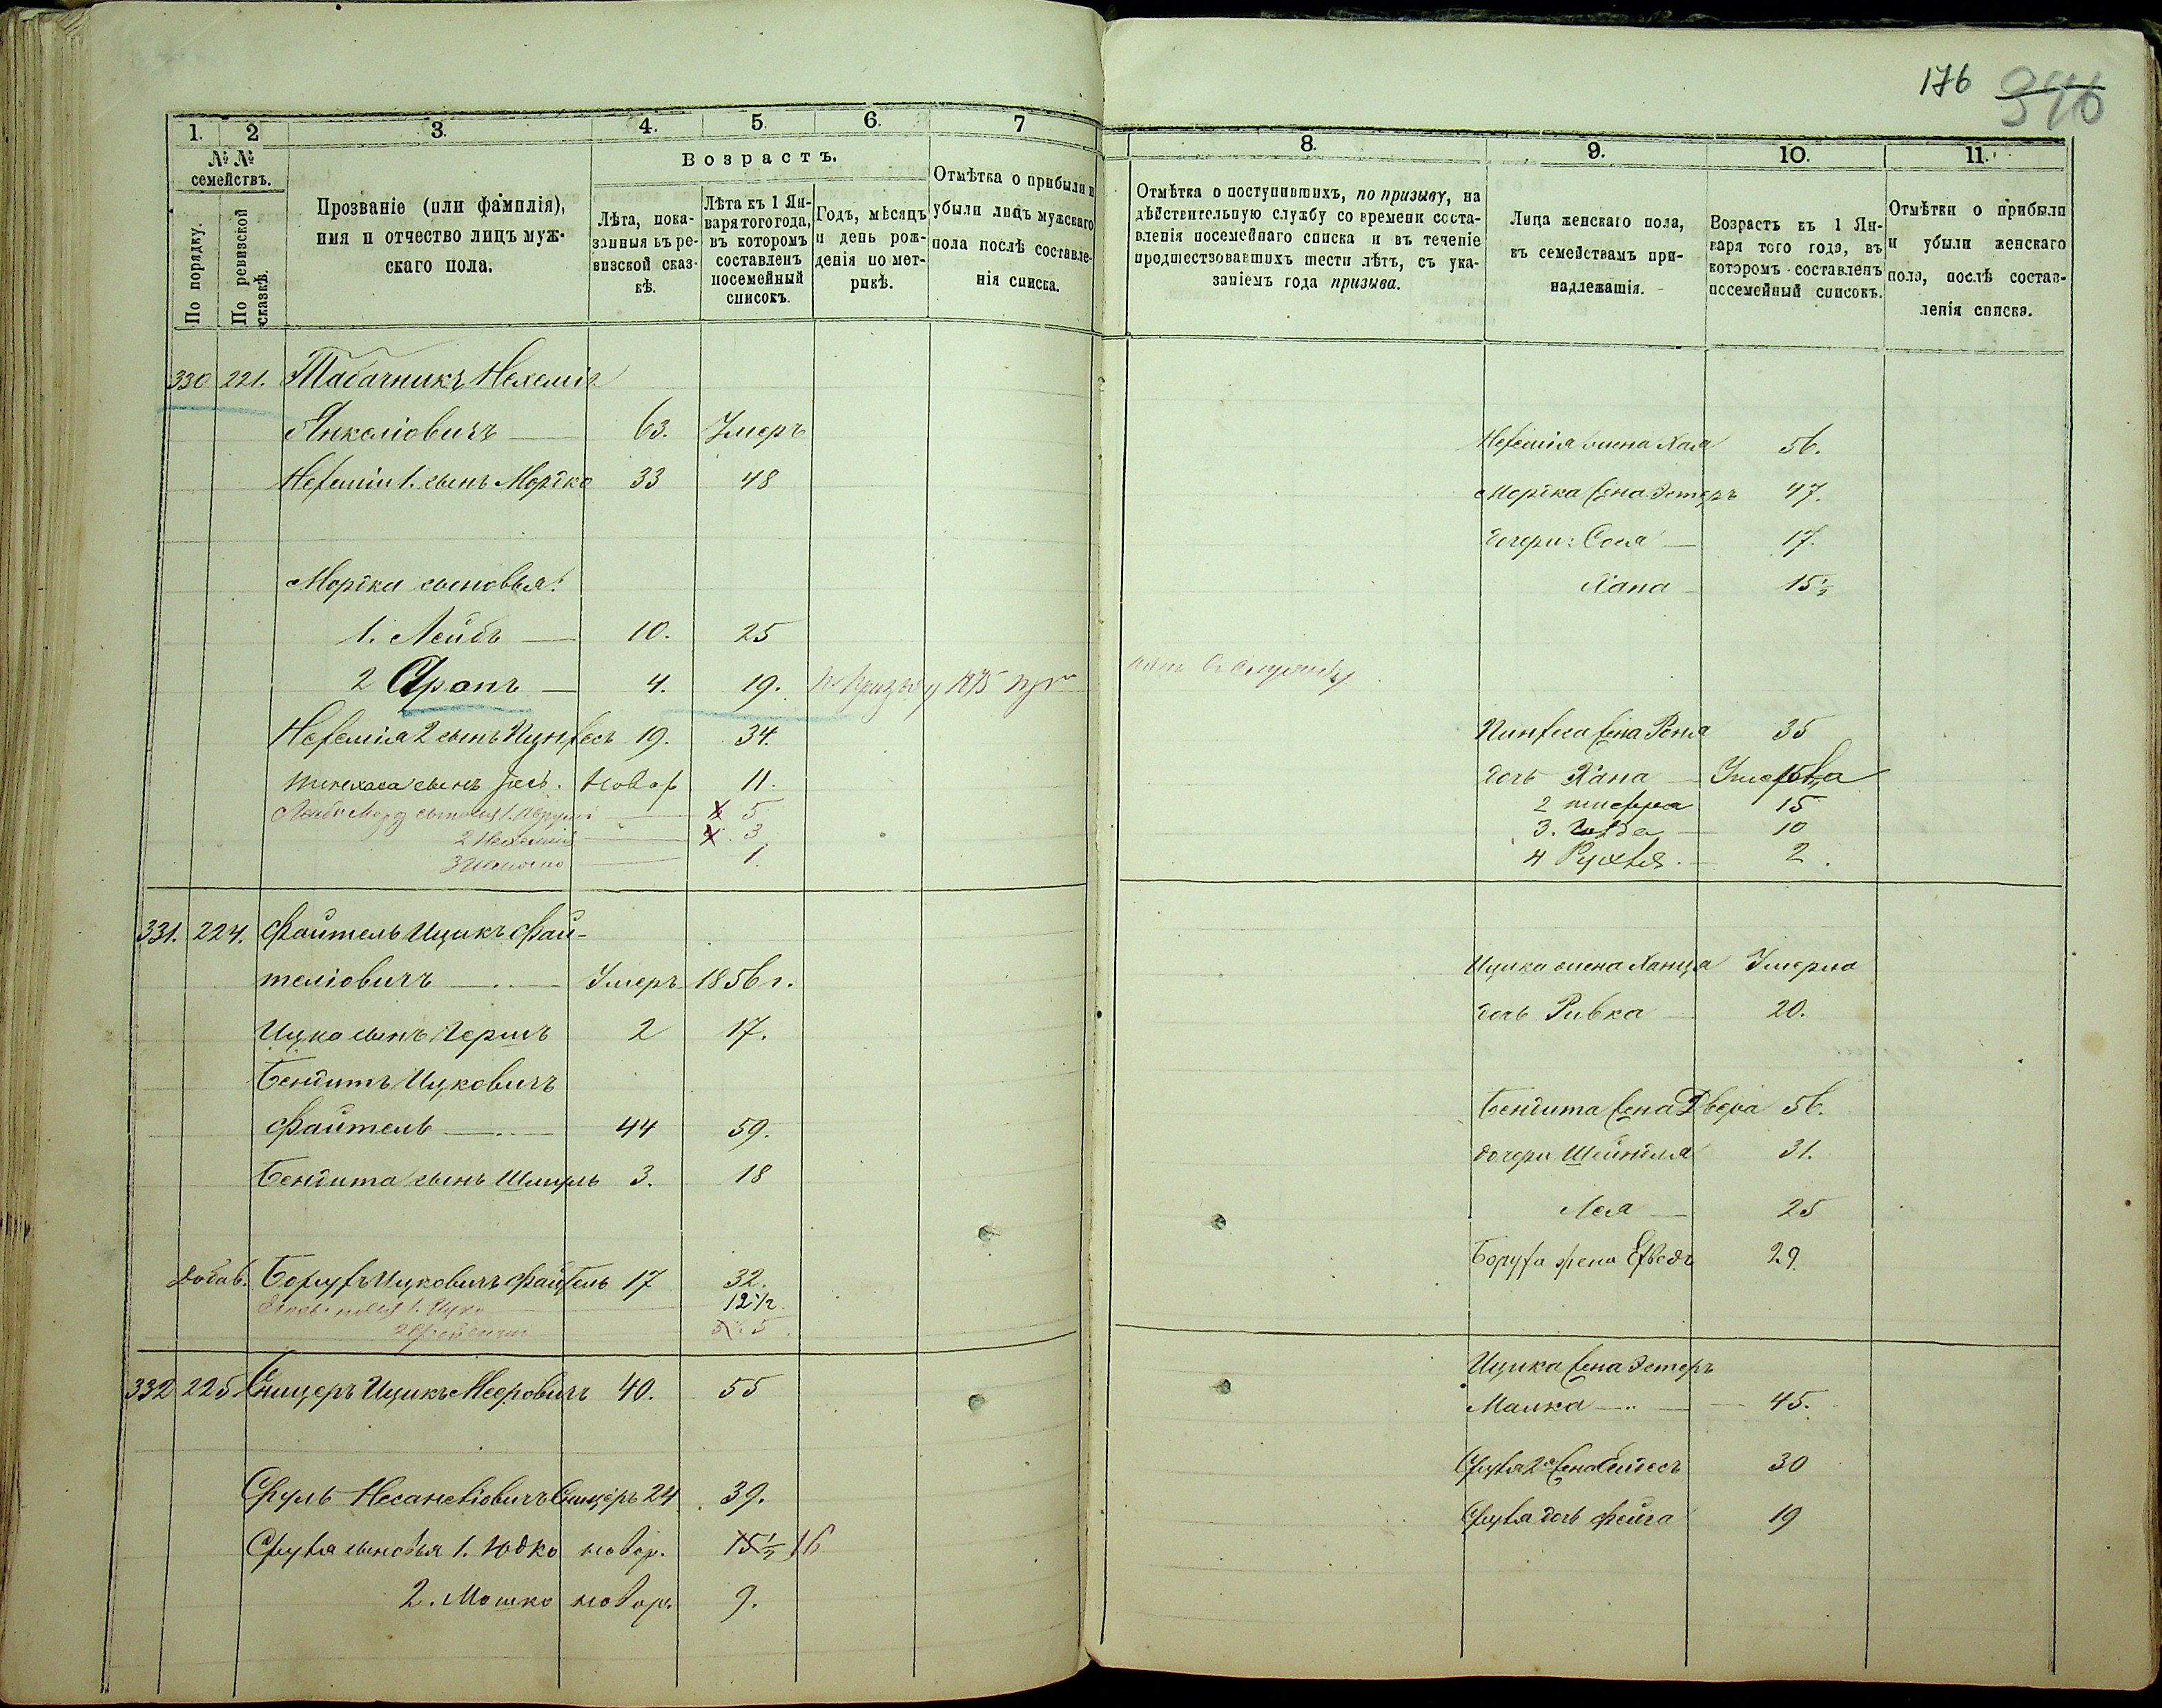 176 346
1. 2 3. 4. 5. 6. 7
№ №
семействъ.
По порядку.
По ревизской сказкѣ.
Прозваніе (или фамилія),
имя и отчество лицъ муж-
скаго пола.
Возрастъ.
Лѣта, пока-
занныя въ ре-
визской сказ-
кѣ.
Лѣта къ 1 Ян-
варя того года,
въ которомъ
составленъ
посемейный
списокъ.
Годъ, мѣсяцъ
и день рож-
денія по мет-
рикѣ.
Отмѣтка о прибыли и
убыли лицъ мужскаго
пола послѣ составле-
нія списка.
330 221. Табачникъ Нехемія
Янкеліовичъ — 63. Умеръ
Нехемія 1. сынъ Мортко 33 48
Мортка сыновья:
1. Лейбъ — 10. 25
2 Сронъ — 4. 19. Къ призыву 1875
Нехемія 2 сынъ Пинхесъ 19. 34.
Пинехаса сынъ новор 11.
5
2 Нехемія 3
3 1.
331. 224. Файтель Ицикъ Фай-
теліовичъ — Умеръ 1856 г.
Ицка сынъ Гершъ 2 17.
Бендитъ Ицковичъ
Файтель — 44 59.
Бендита сынъ Шмуль 3. 18
добав. Борухъ Ицковичъ Файтель 17 32.
1. Ицко 12½
2 5
332 225. Сницеръ Ицикъ Мееровичъ 40. 55
Сруль Несанеліовичъ Сницеръ 24 39.
Сруля сыновья 1. Юдко новор. 15½ 16
2. Мошко новор. 9.
8. 9. 10. 11.
Отмѣтка о поступившихъ, по призыву, на
дѣйствительную службу со времени соста-
вленія посемейнаго списка и въ теченіе
предшествовавшихъ шести лѣтъ, съ ука-
заніемъ года призыва.
Лица женскаго пола,
къ семействамъ при-
надлежащія.
Возрастъ къ 1 Ян-
варя того года, въ
которомъ составленъ
посемейный списокъ.
Отмѣтки о прибыли
и убыли женскаго
пола, послѣ состав-
ленія списка.
Нехемія жена Хая 56.
Мортка жена Эстеръ 47.
дочери: Сося — 17.
Хана — 15½
Пинхеса жена Роня 35
дочь Хана — Умерла
2 15
3. Голда — 10
4 Рухля — 2.
Ицика жена Ханца Умерла
дочь Ривка — 20.
Бендита жена Двера 56.
дочери Шейндля 31.
Лея — 25
Боруха жена Ехведъ 29.
Ицика жена Эстеръ
Малка — 45.
Сруля 2я жена Симесъ 30
Сруля дочь Фейга 19